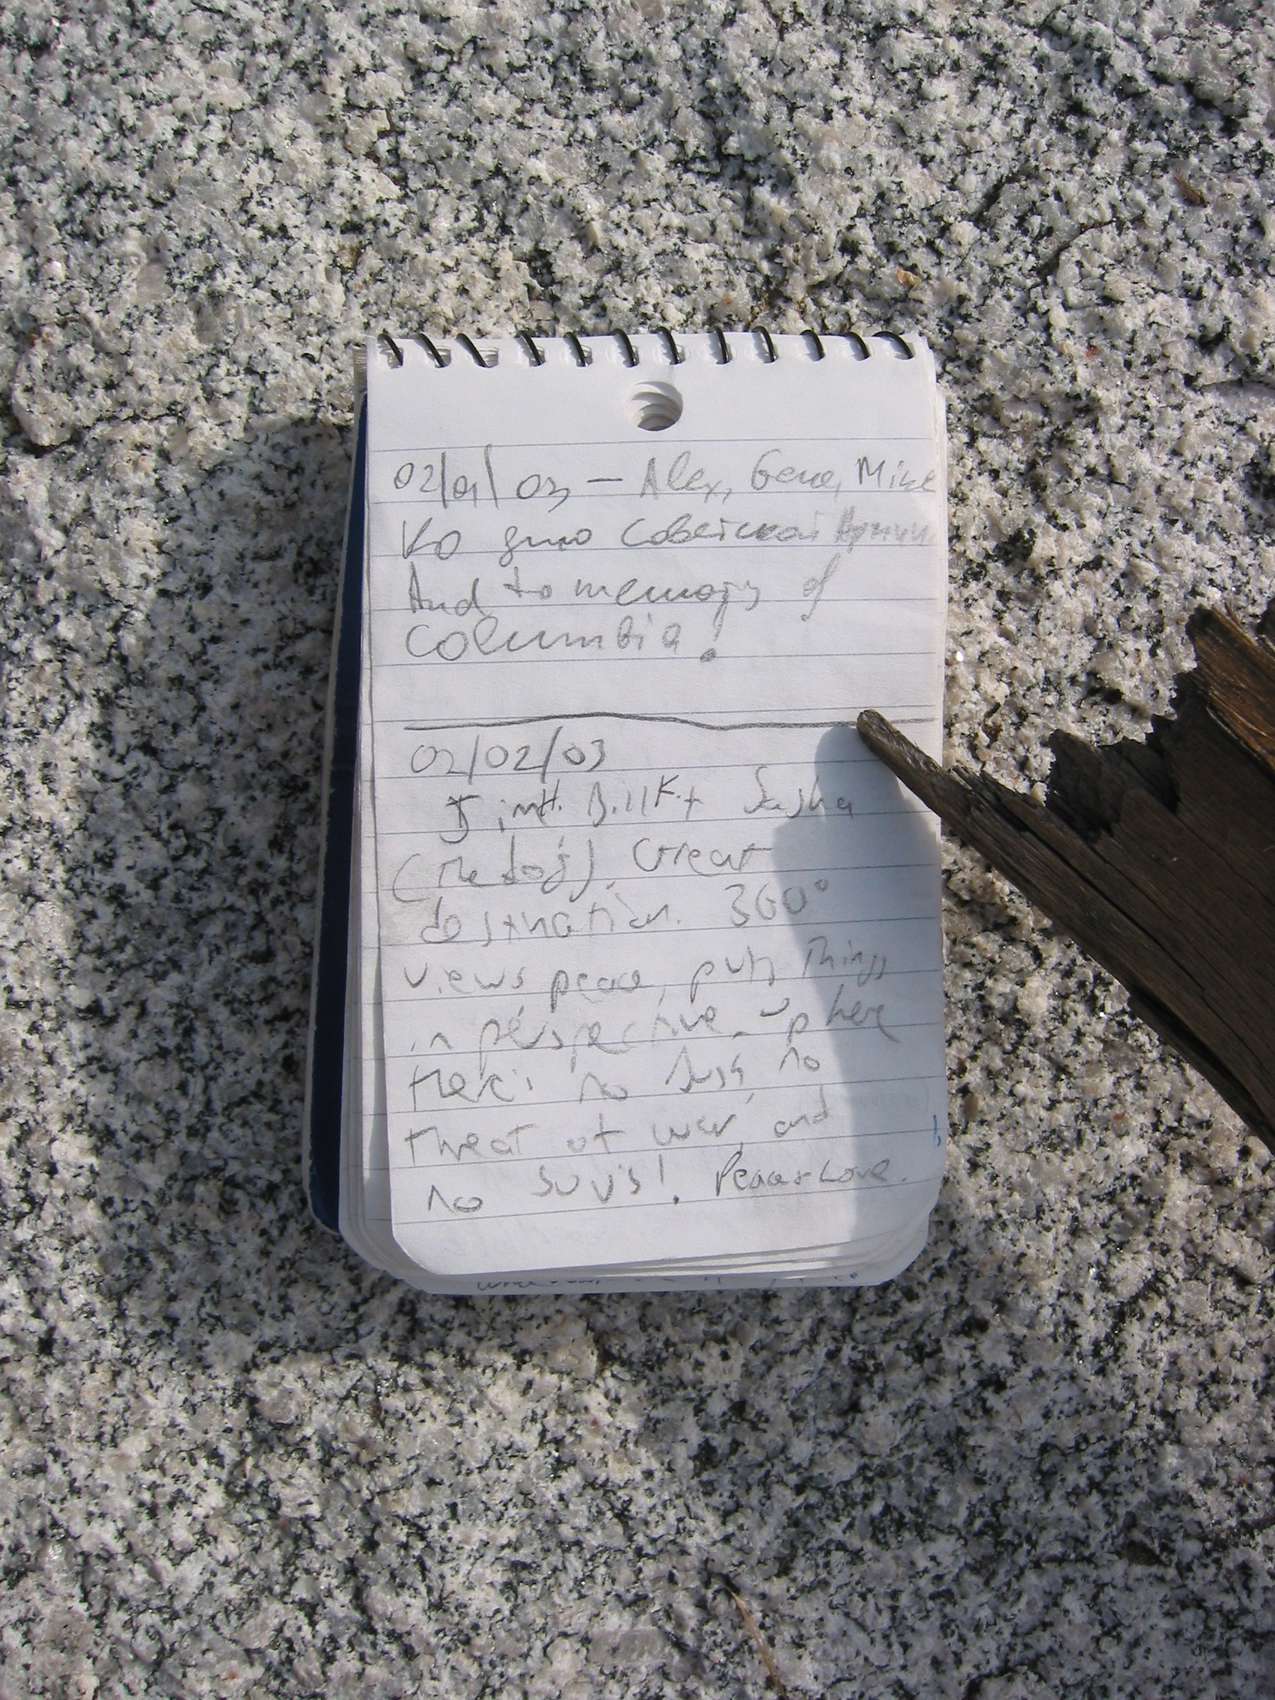 02/01/03 — Alex, Gena, Mike
Ко дню Советской Армии
And to memory of
Columbia!
02/02/03
Jim H. Bill K +
(the dog). Great
destination. 360°
views peace, puts things
in perspective up here
no no
threat of war, and
no SUV's! Peace + Love.